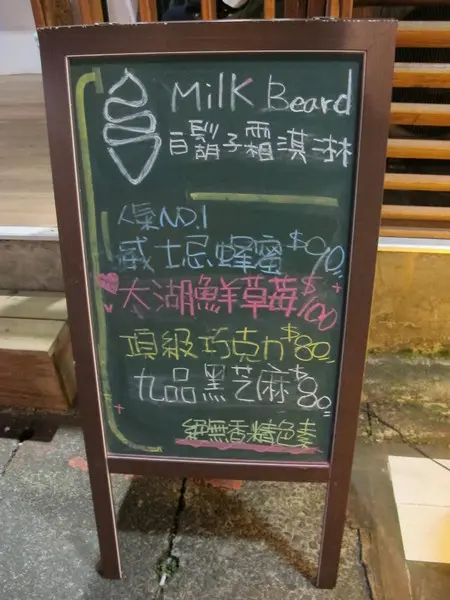 Milk Beard
白鬍子霜淇淋
人氣NO.1
威士忌蜂蜜$90
大湖鮮草莓$100
頂級巧克力$80
九品黑芝麻$80
絕無香精色素